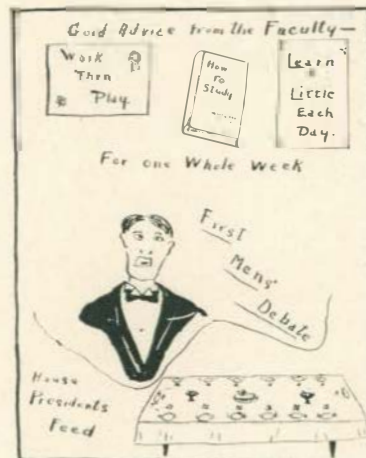 Good Advice from the Faculty—
Work
Then
Play.
How
To
Study
Learn
Little
Each
Day.
For one Whole Week
First
Mens'
Debate
House
Presidents
Feed